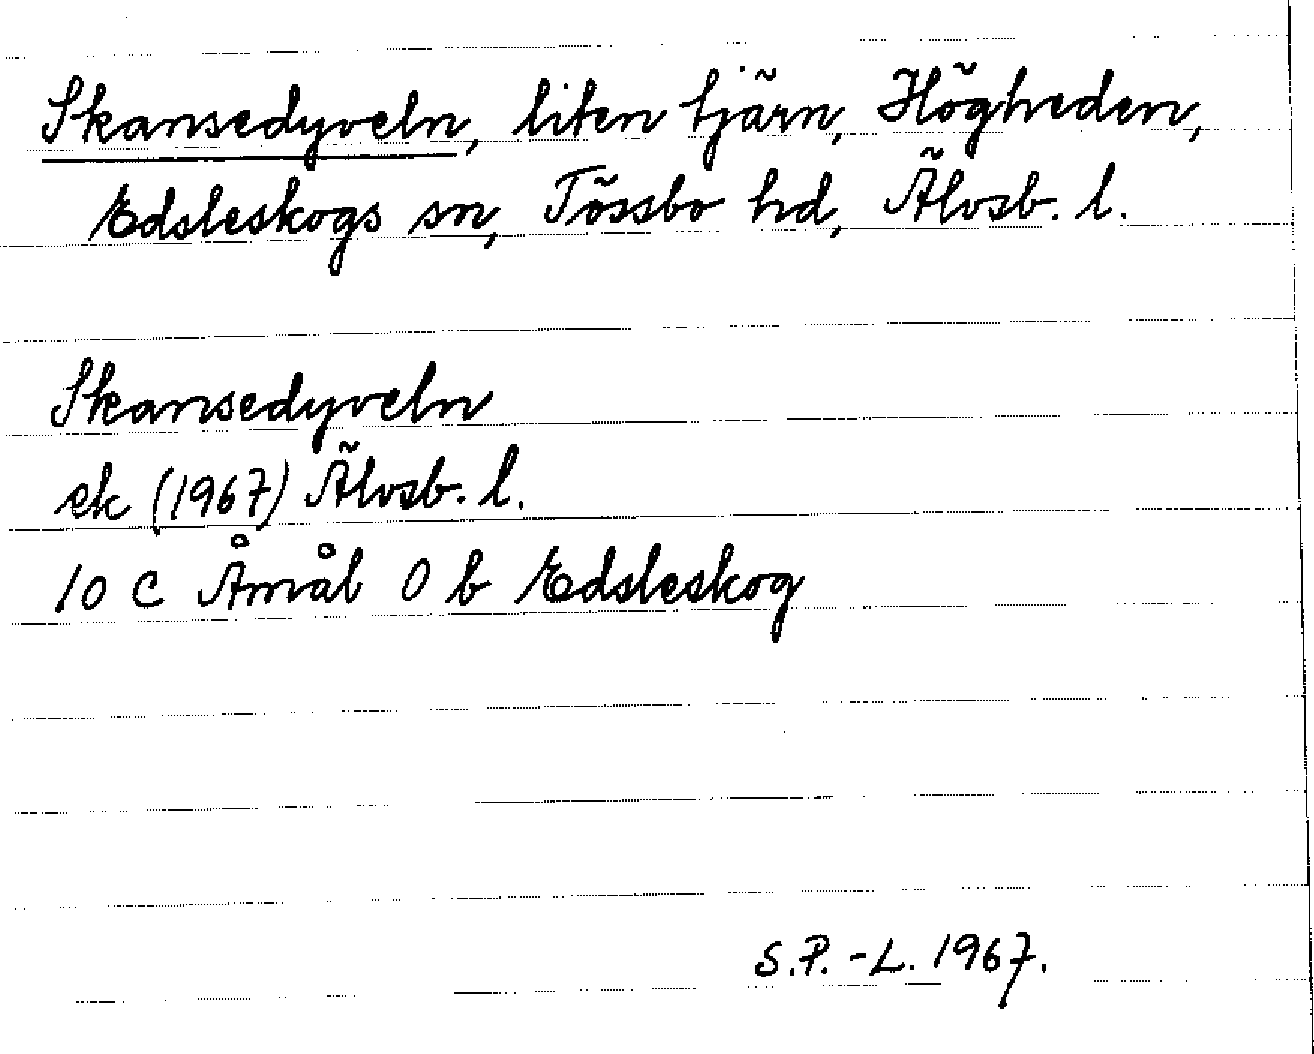 Skansedyveln, liten tjärn, Högheden,
Edsleskogs sn, Tössbo hd, Älvsb. l.
Skansedyveln
ek (1967) Älvsb. l.
10 C Åmål 0 b Edsleskog
S.P.-L. 1967.